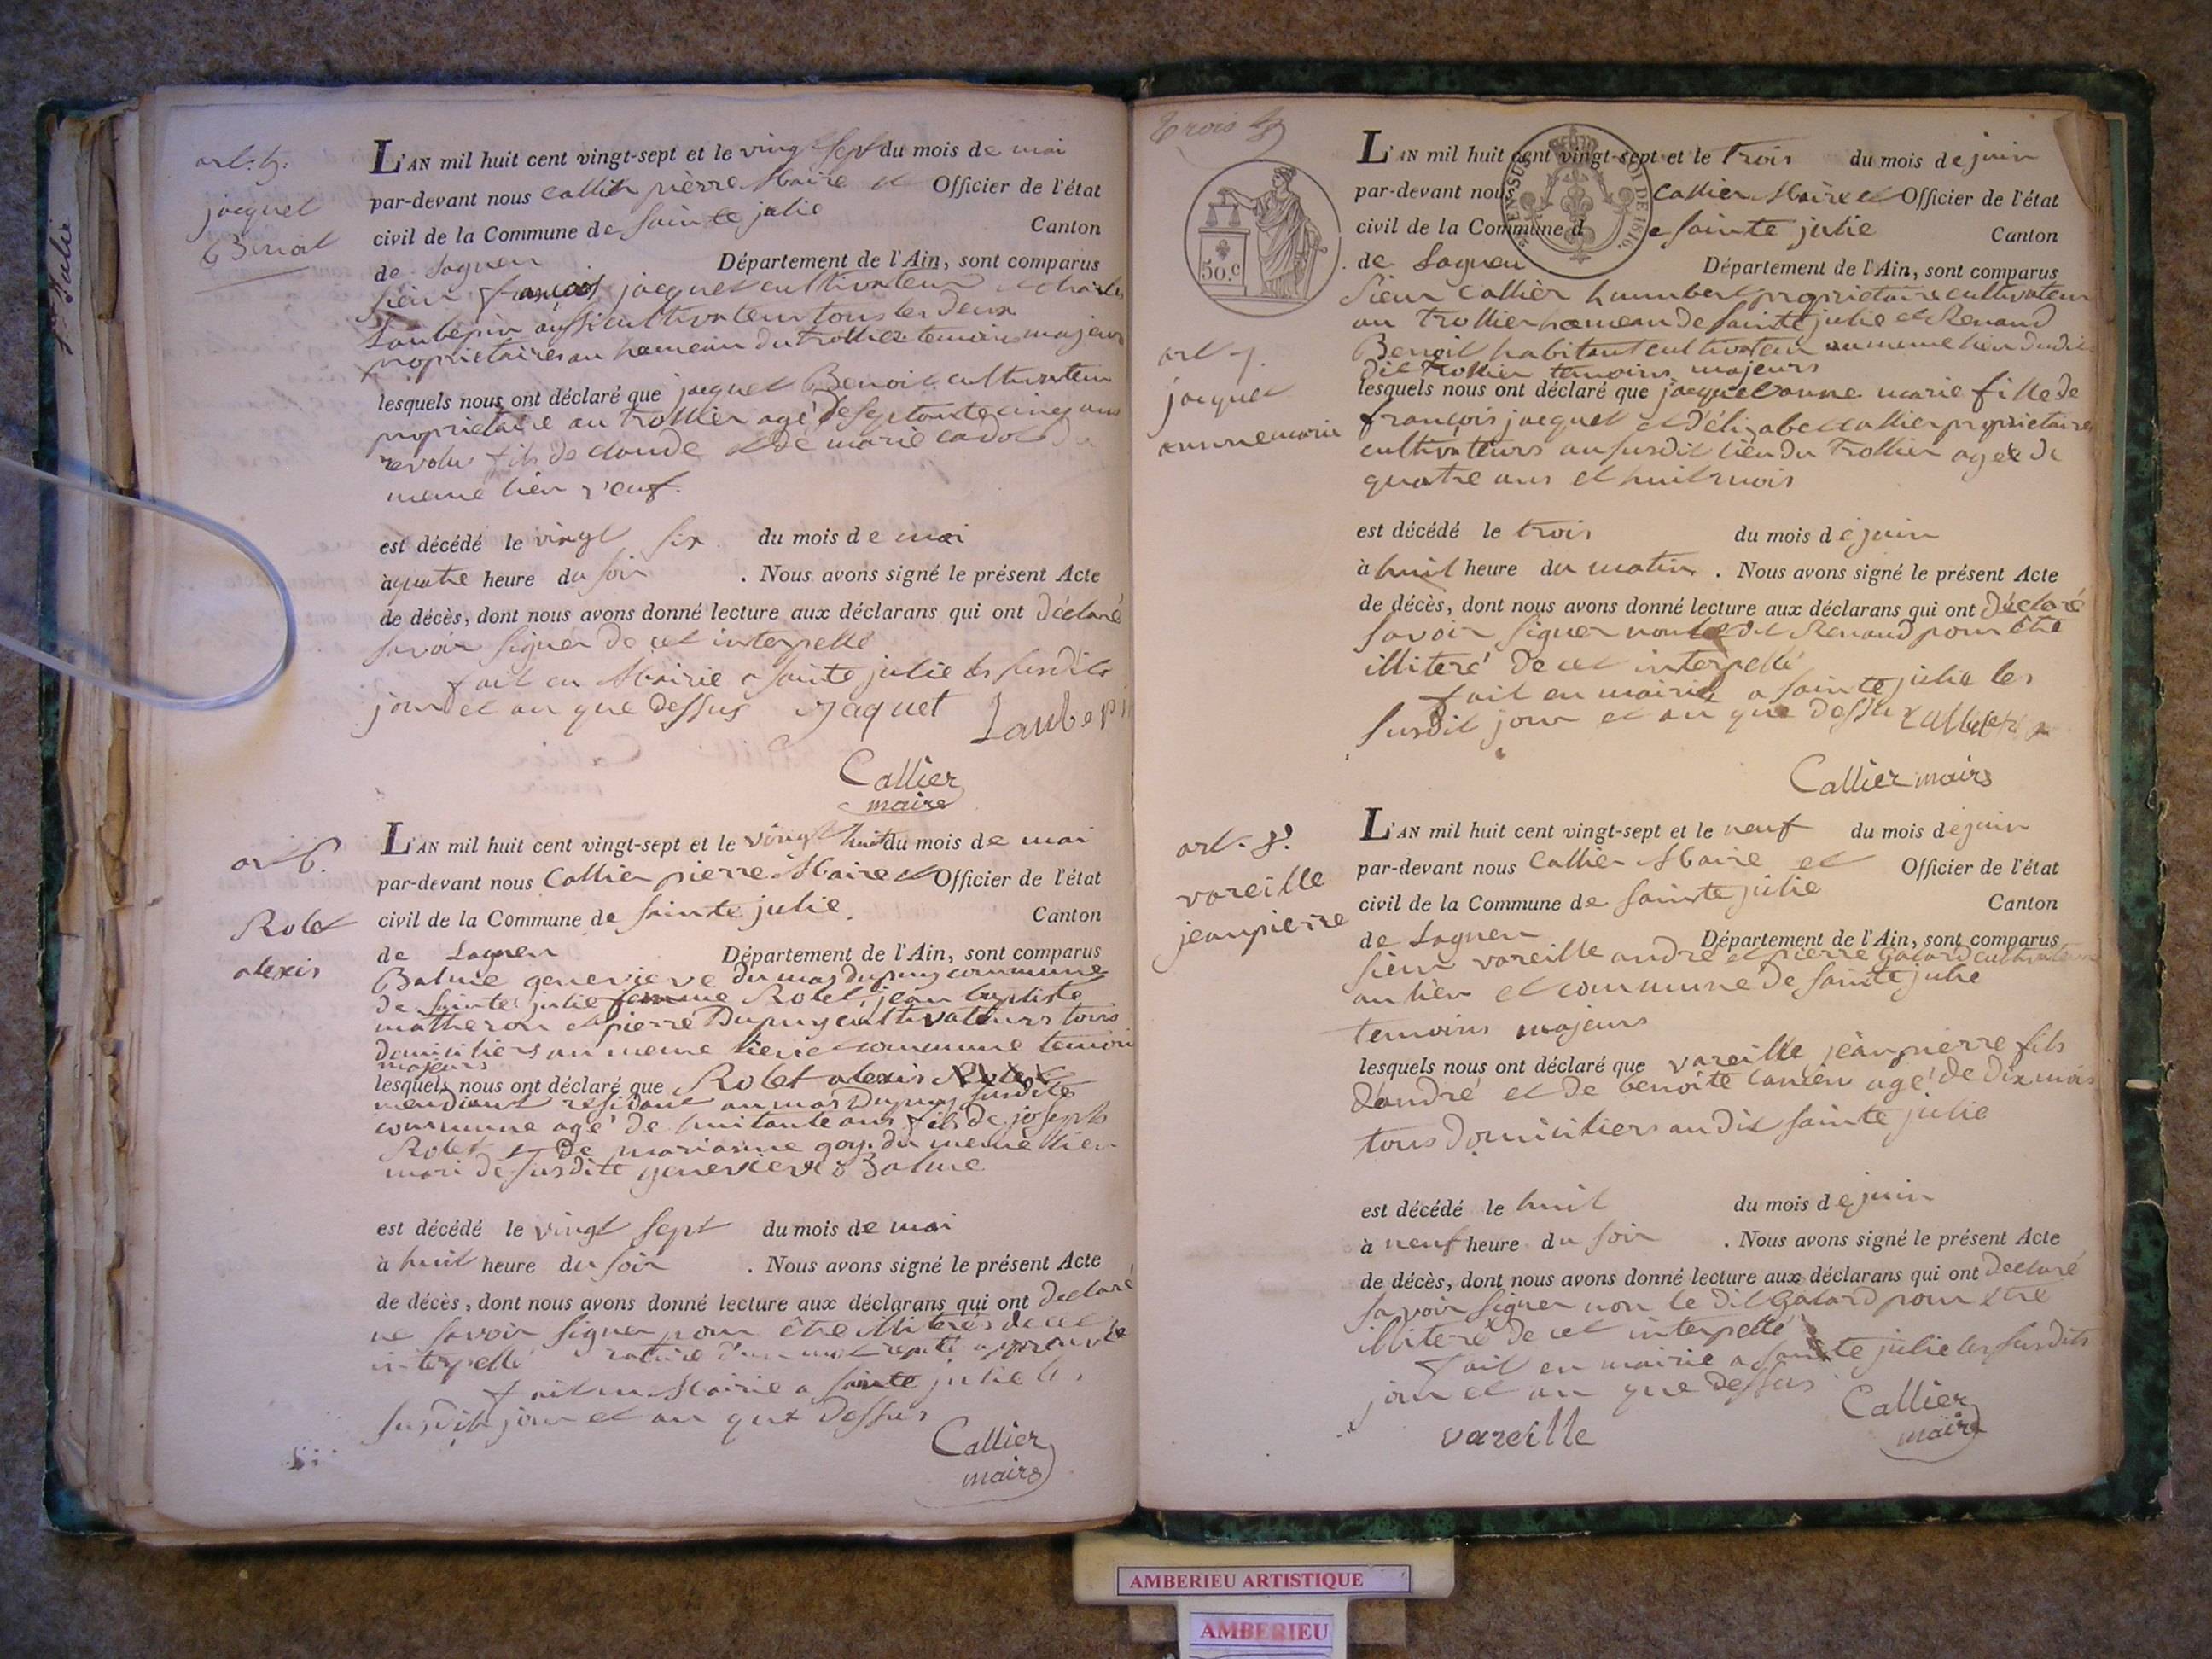 Ste Julie
art. 5.
jacquet
Benoit
L'AN mil huit cent vingt-sept et le vingt sept du mois de mai
par-devant nous Callier pierre Maire et Officier de l'état
civil de la Commune de sainte julie Canton
de Lagneu Département de l'Ain, sont comparus
sieur françois jacquet cultivateur et charles
Laubepin aussi cultivateur tous les deux
proprietaires au hameau du trollier temoins majeurs
lesquels nous ont déclaré que jaquet Benoit cultivateur
proprietaire au trollier agé de septante cinq ans
revolu fils de claude et de marie cadot du
meme lieu veuf.
est décédé le vingt six du mois de mai
à quatre heure du soir . Nous avons signé le présent Acte
de décès, dont nous avons donné lecture aux déclarans qui ont déclaré
savoir signer de cet interpellé
fait en Mairie a sainte julie les susdits
jour et an que dessus Jaquet Laubepi
Callier
maire
art 6.
Rolet
alexis
L'AN mil huit cent vingt-sept et le vingt huit du mois de mai
par-devant nous Callier pierre Maire et Officier de l'état
civil de la Commune de sainte julie. Canton
de Lagneu Département de l'Ain, sont comparus
Balme genevieve du mas dupuy commune
de sainte julie femme Rolet, jean baptiste
matheron et pierre Dupuy cultivateurs tous
domiciliers au meme lieu et commune temoins
majeurs
lesquels nous ont déclaré que Rolet alexis
mendiant residant au mas Dupuy susdite
commune agé de huitante ans fils de joseph
Rolet et de marianne goy. du meme lieu
mari de susdite genevieve Balme
est décédé le vingt sept du mois de mai
à huit heure du soir . Nous avons signé le présent Acte
de décès, dont nous avons donné lecture aux déclarans qui ont declaré
ne savoir signer pour être illiterés de cet
interpellé rature d'un mot approuvée
fait en Mairie a sainte julie les
susdits jour et an que dessus
Callier
maire
trois
50.c
art 7.
jacquet
anne marie
L'AN mil huit cent vingt-sept et le trois du mois de juin
par-devant nous Callier Maire et Officier de l'état
civil de la Commune de sainte julie Canton
de Lagneu Département de l'Ain, sont comparus
sieur Callier humbert proprietaire cultivateur
au trollier hameau de sainte julie et Renaud
Benoit habitant cultivateur au meme lieu dudit
dit trollier temoins majeurs
lesquels nous ont déclaré que jacquet anne marie fille de
françois jacquet et d'élizabet callier proprietaires
cultivateurs au susdit lieu du trollier agée de
quatre ans et huit mois
est décédé le trois du mois de juin
à huit heure du matin . Nous avons signé le présent Acte
de décès, dont nous avons donné lecture aux déclarans qui ont déclaré
savoir signer non le dit Renaud pour être
illiteré de cet interpellé
fait en mairie a sainte julie les
susdit jour et an que dessus
Callier maire
art. 8.
vareille
jeanpierre
L'AN mil huit cent vingt-sept et le neuf du mois de juin
par-devant nous Callier Maire et Officier de l'état
civil de la Commune de sainte julie Canton
de Lagneu Département de l'Ain, sont comparus
sieur vareille andré et pierre Galard cultivateurs
au lieu et commune de sainte julie
temoins majeurs
lesquels nous ont déclaré que vareille jeanpierre fils
d'andré et de benoite agé de dix mois
tous domiciliers au dit sainte julie
est décédé le huit du mois de juin
à neuf heure du soir . Nous avons signé le présent Acte
de décès, dont nous avons donné lecture aux déclarans qui ont declaré
savoir signer non le dit Galard pour etre
illiteré de cet interpellé
fait en mairie a sainte julie les susdits
jour et an que dessus.
vareille
Callier
maire
AMBERIEU ARTISTIQUE
AMBERIEU